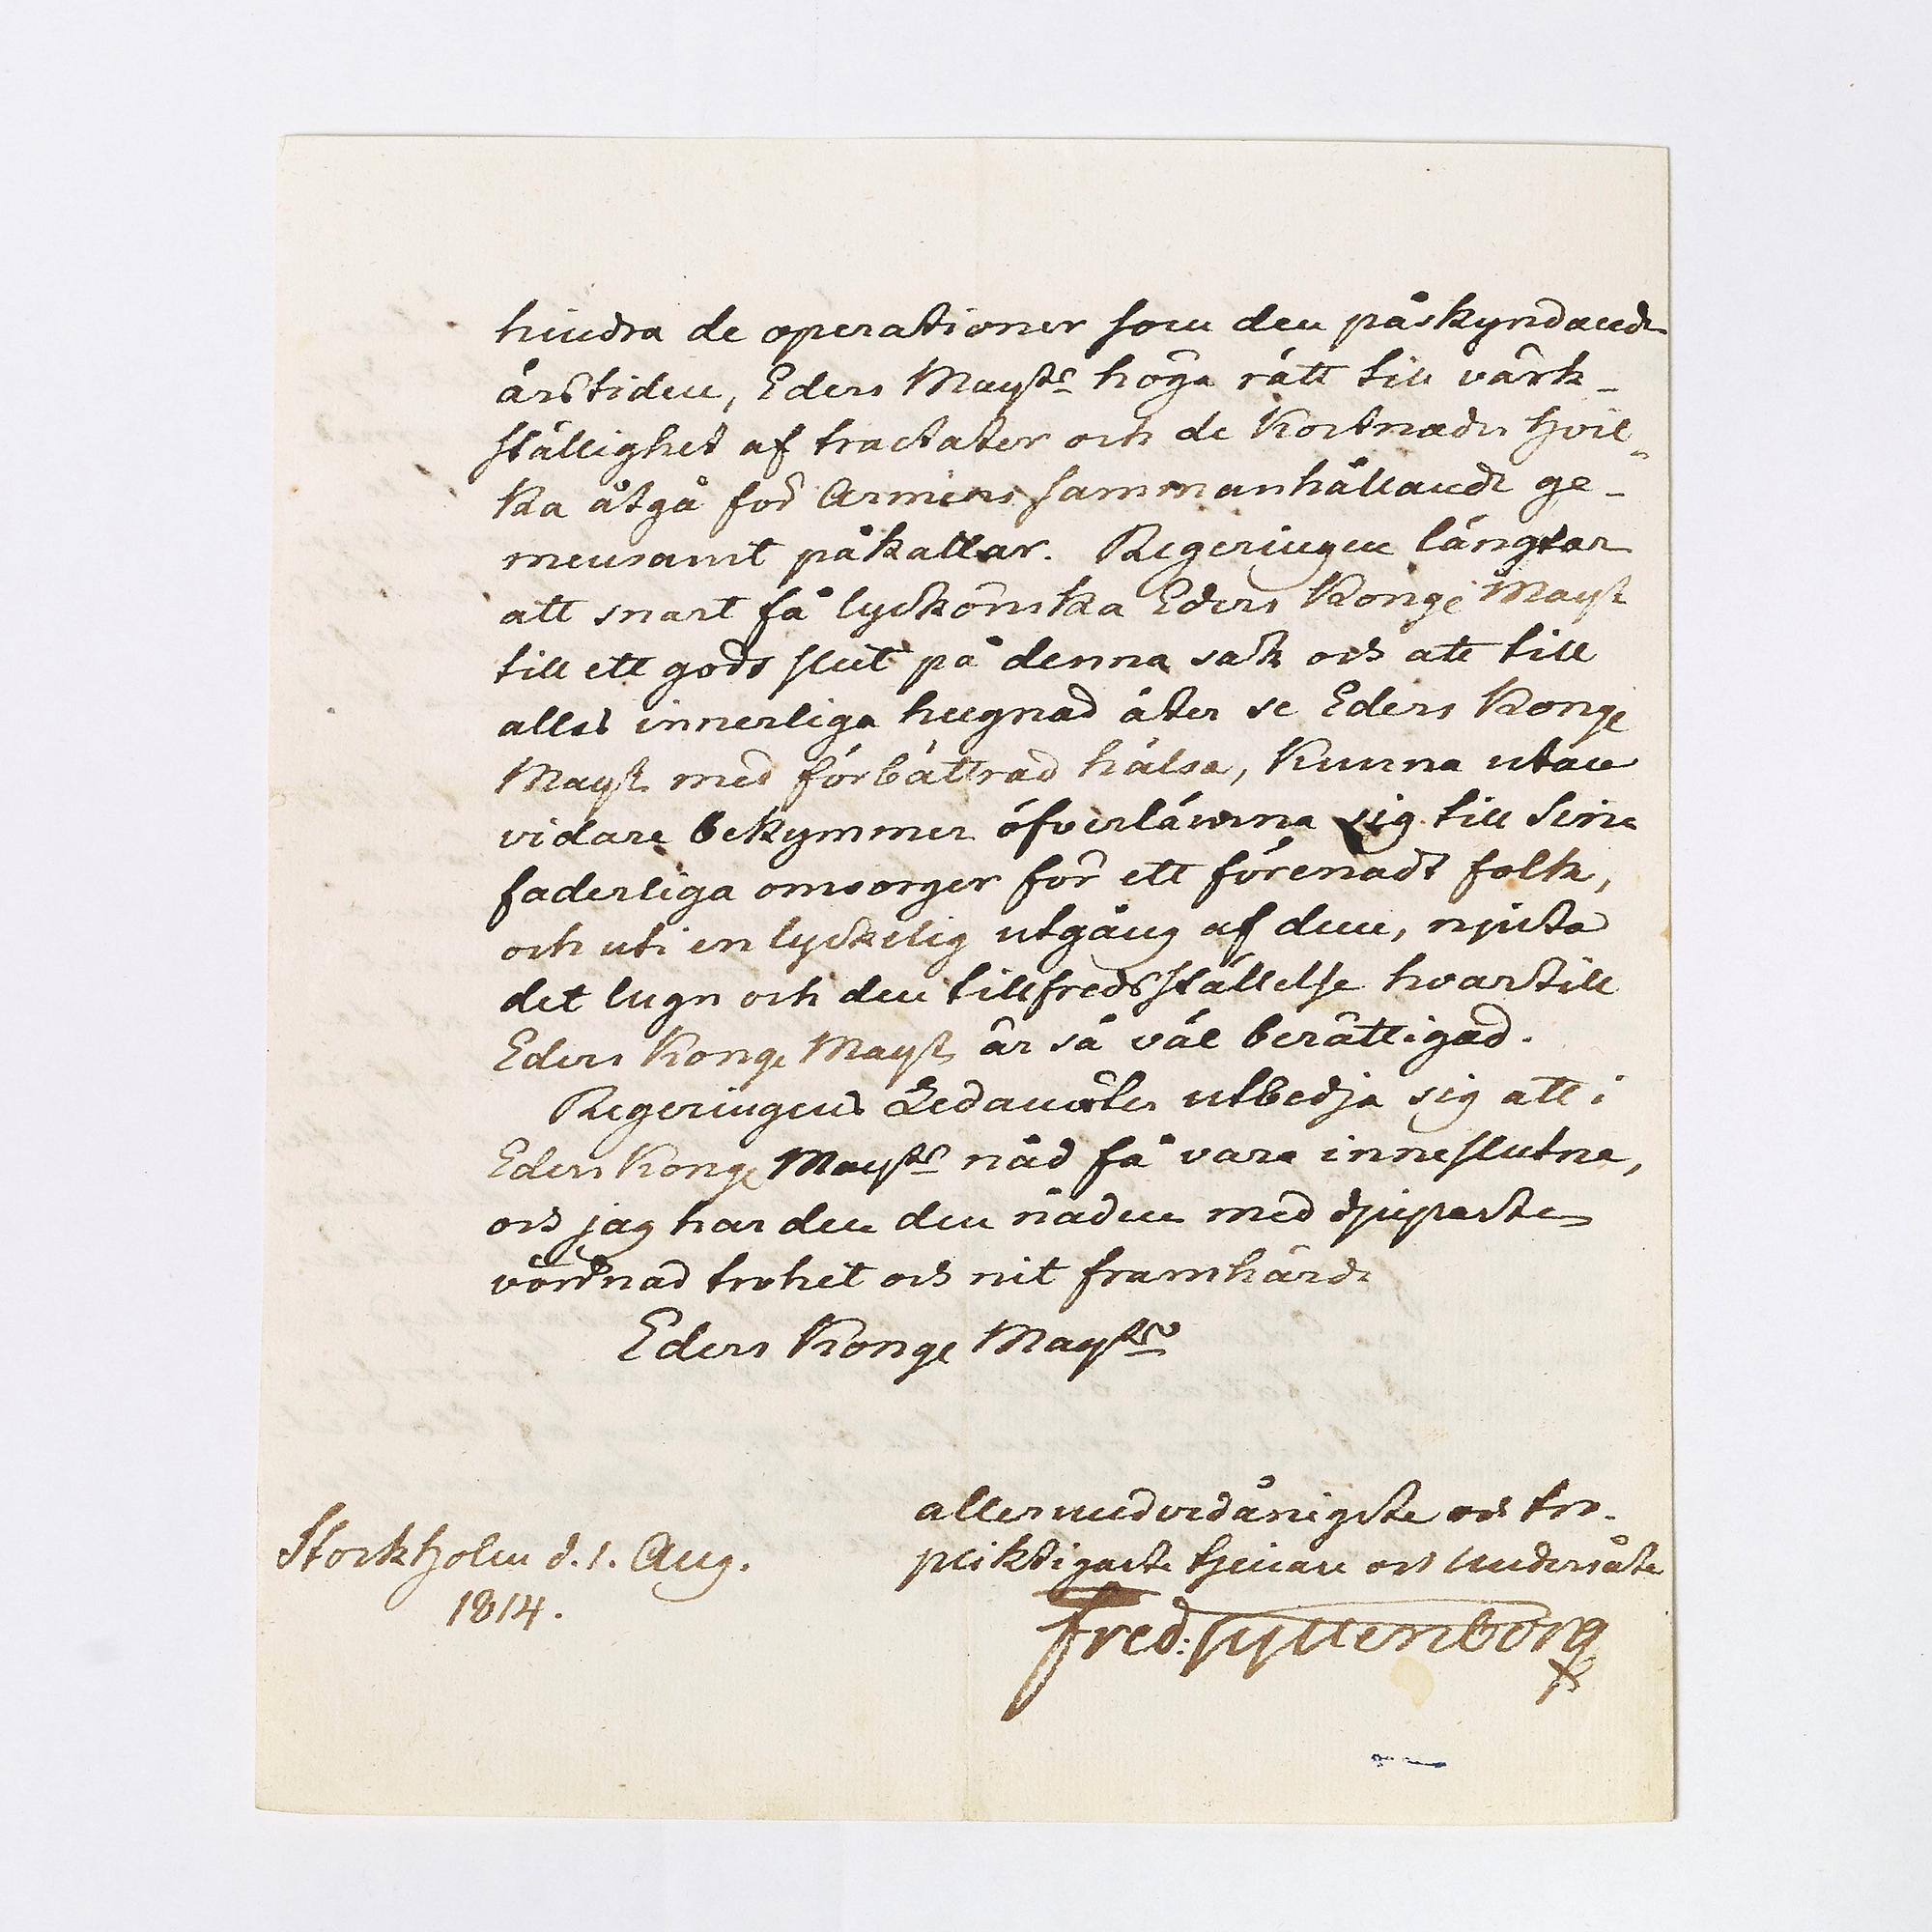 hindra de operationer som den påskyndande
årstiden, Eders Maysts höga rätt till värk-
ställighet af tractater och de kostnader hvil-
ka åtgå för Armens sammanhållande ge-
mensamt påkallar. Regeringen längtar
att snart få lyckönska Eders Kongе Mayst
till ett godt slut på denna sak och att till
allas innerliga hugnad åter se Eders Konge
Mayst med förbättrad hälsa, kunna utan
vidare bekymmer öfverlämna sig till Sina
faderliga omsorger för ett förenadt folk,
och uti en lyckelig utgång af dem, njuta
det lugn och den tillfredsställelse hvartill
Eders Konge Mayst är så väl berättigad.
Regeringens Ledamöter utbedja sig att i
Eders Konge Maysts nåd få vara inneslutne,
och jag har den den nåden med djupaste
vördnad trohet och nit framhärda
Eders Konge Maysts
allerunderdånigste och tro-
pliktigaste tjenare och undersåte
Fred: Gyllenborg
Stockholm d. 1. Aug.
1814.